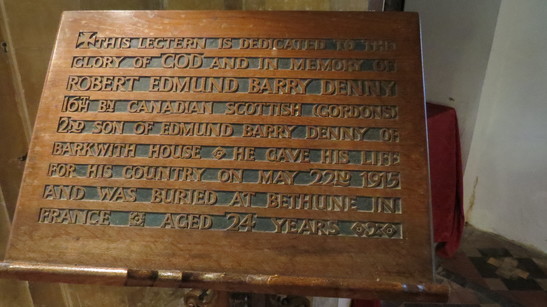 ✠ THIS LECTERN IS DEDICATED TO THE
GLORY OF GOD AND IN MEMORY OF
ROBERT EDMUND BARRY DENNY
16TH BN CANADIAN SCOTTISH (GORDONS)
2ND SON OF EDMUND BARRY DENNY OF
BARKWITH HOUSE HE GAVE HIS LIFE
FOR HIS COUNTRY ON MAY 22ND 1915
AND WAS BURIED AT BETHUNE IN
FRANCE AGED 24 YEARS